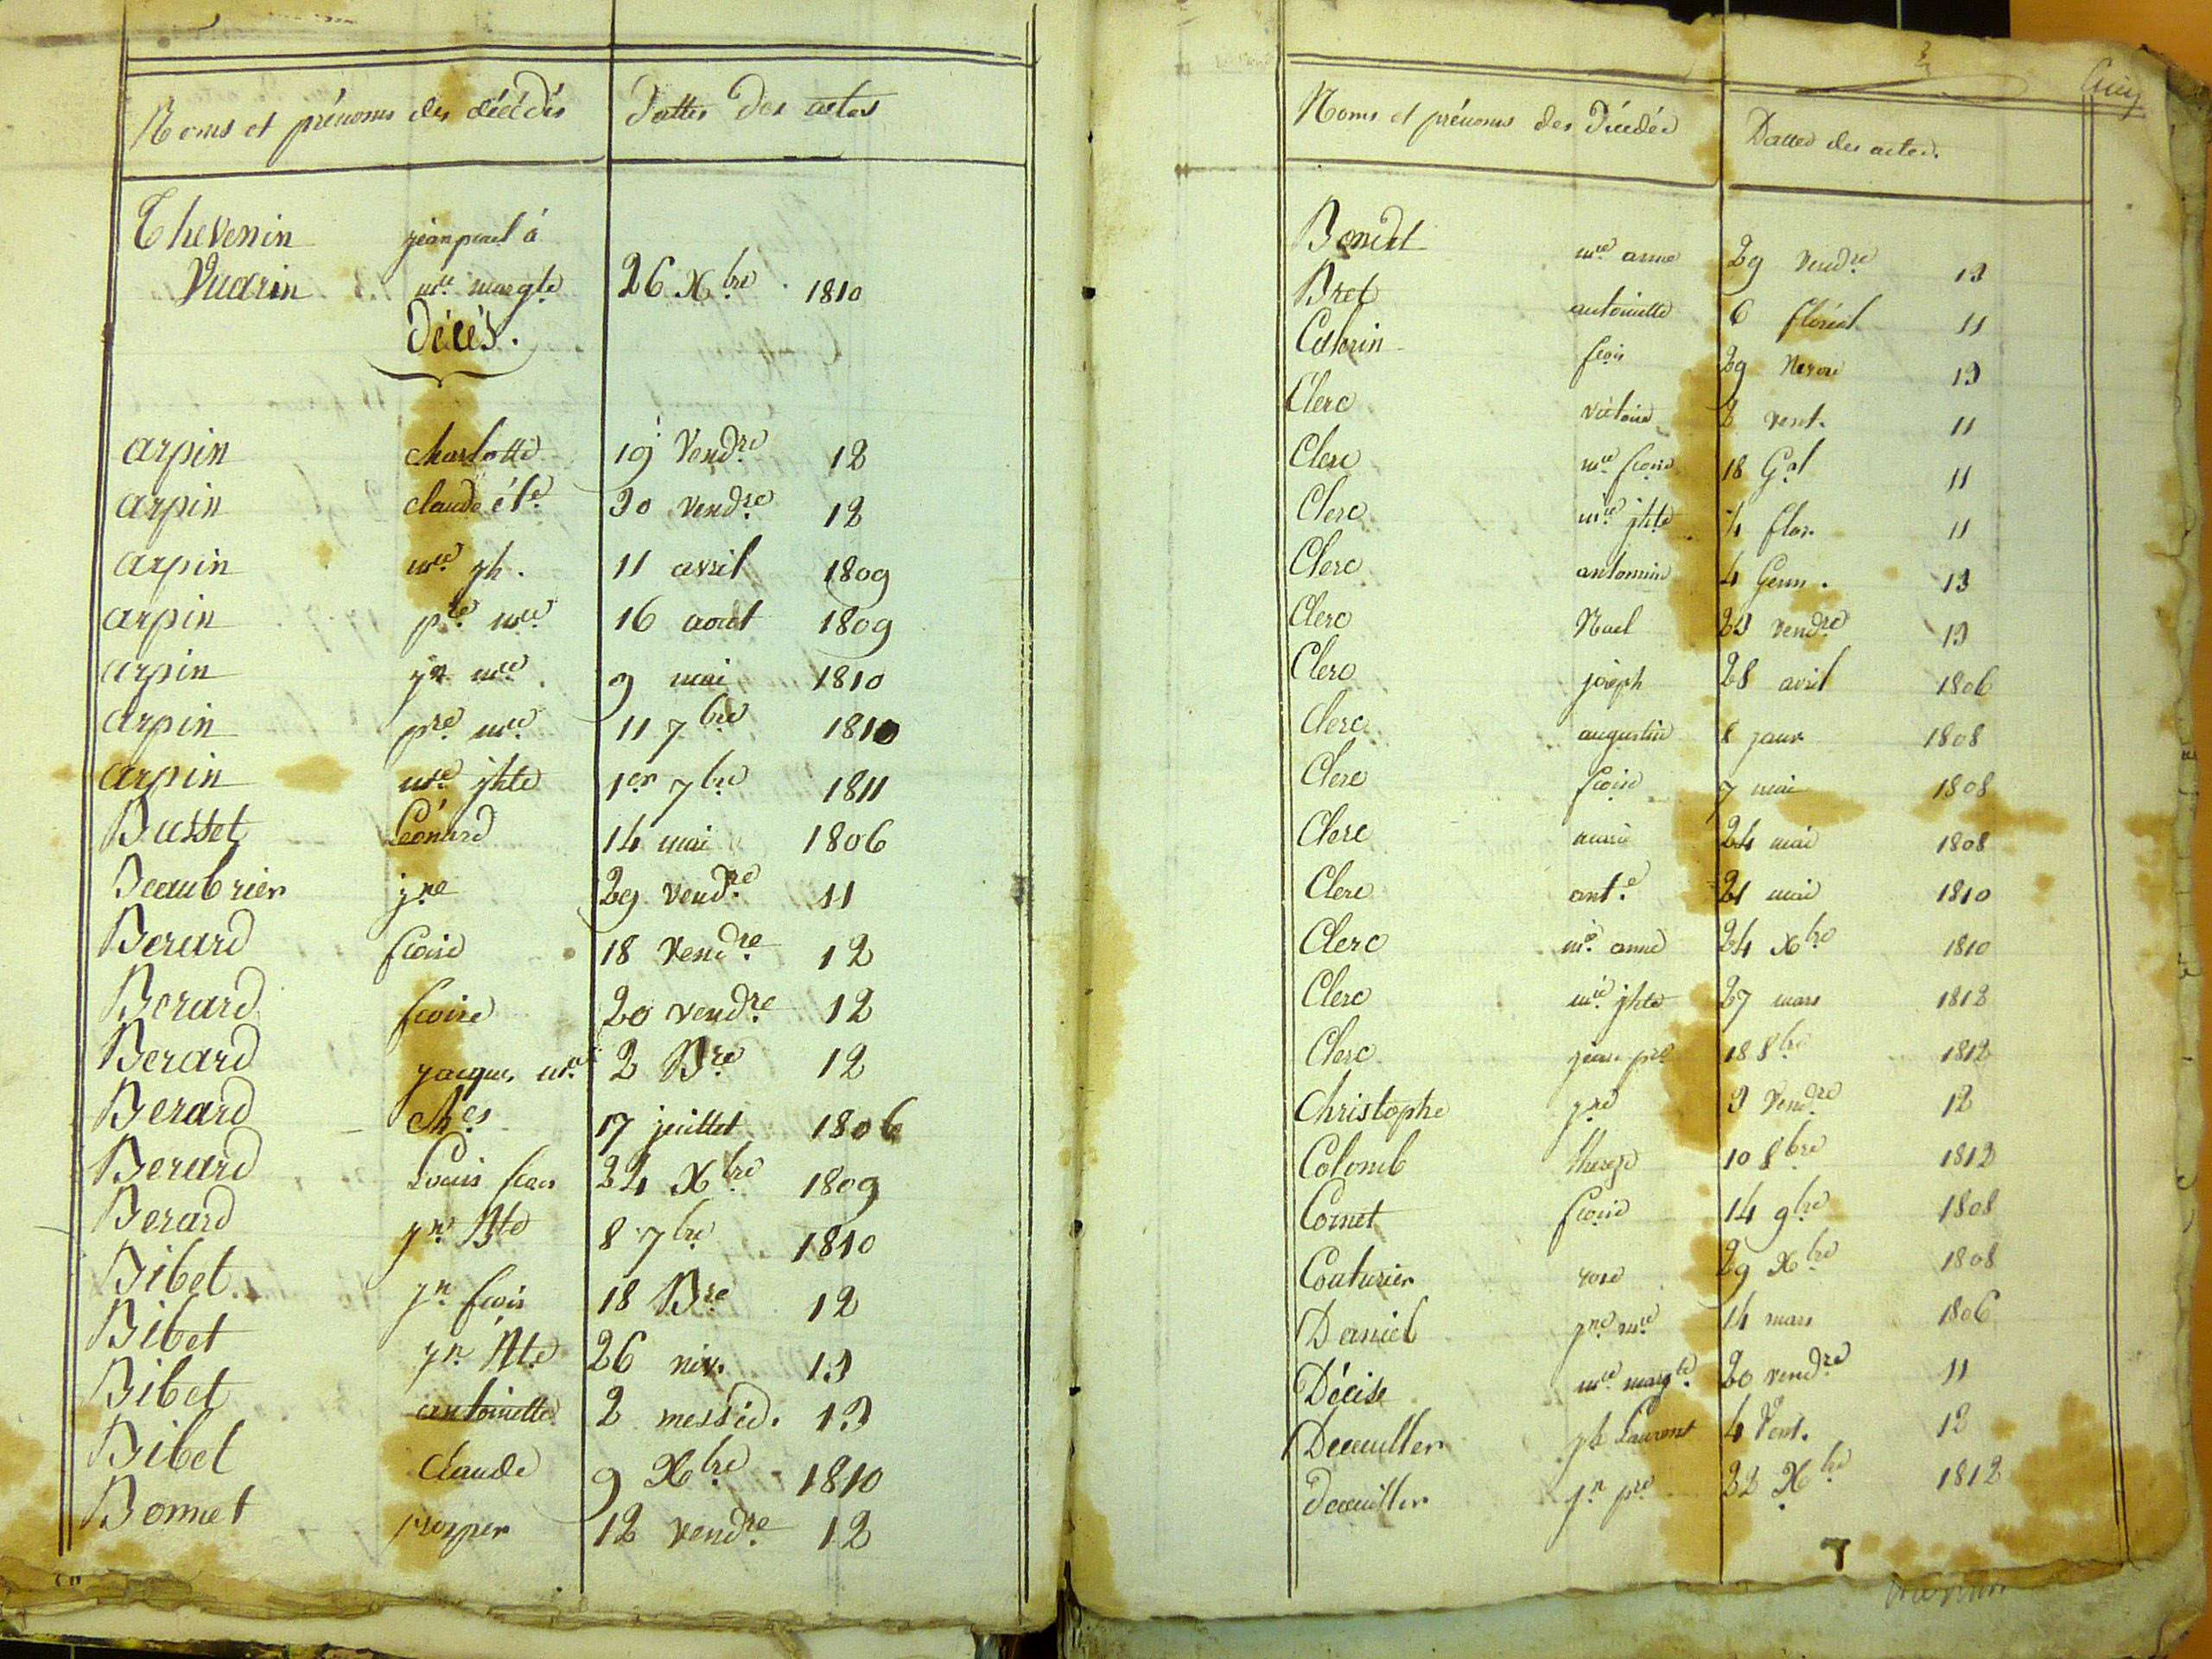 Noms et prénoms des décédés Dattes des actes
Thevenin jean paul à
Vuarin mie margte 26 Xbre 1810
Décés.
arpin charlotte 19 Vendre 12
arpin claude éte 30 vendre 12
arpin mce jh. 11 avril 1809
arpin pre mce 16 août 1809
arpin jn mce 9 mai 1810
arpin pre mce 11 7bre 1810
arpin mie jhte 1er 7bre 1811
Basset Léonard 14 mai 1806
Beaubrier jne 29 vendre 11
Berard fcoise 18 Vendre 12
Berard fcoise 20 vendre 12
Berard jacques mce 2 Bre 12
Berard Ches 17 juillet 1806
Berard Louis fcois 24 Xbre 1809
Berard jn Bte 8 7bre 1810
Bibet jn fcois 18 Bre 12
Bibet jn Bte 26 niv. 13
Bibet antoinette 2 messid. 13
Bibet Claude 9 Xbre 1810
Bonnet prosper 12 vendre 12
Noms et prénoms des Décédés Dattes des actes.
mie anne 29 Vendre 13
Bret antoinette 6 floréal 11
fcois 29 13
Clerc victoire 8 vent. 11
Clerc mie fcoise 18 Gal 11
Clerc mie jhte 4 flor. 11
Clerc antonin 4 Germ. 13
Clerc Noel 23 vendre 13
Clerc joseph 28 avril 1806
Clerc augustin 8 janv 1808
Clerc fcoise 7 mai 1808
Clerc 24 mai 1808
Clerc ante 21 mai 1810
Clerc mie anne 24 Xbre 1810
Clerc mie jhte 27 mars 1812
Clerc jean pre 18 8bre 1812
Christophe jne 3 Vendre 12
Colomb thereze 10 8bre 1812
Cornet fcoise 14 9bre 1808
Couturier rose 29 Xbre 1808
Daniel jne mie 14 mars 1806
Décise mie margte 20 vendre 11
jh Laurent 4 Vent. 12
jn pre 22 Xbre 1812
7